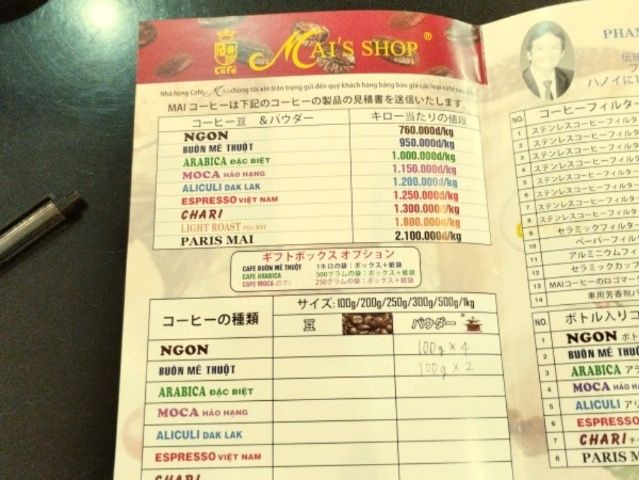 Cafe MAI'S SHOP ®
MAI コーヒーは下記のコーヒーの製品の見積書を送信いたします。
コーヒー豆 &パウダー キロー当たりの値段
NGON 760.000đ/kg
BUÔN MÊ THUỘT 950.000đ/kg
ARABICA ĐẶC BIỆT 1.000.000đ/kg
MOCA HẢO HẠNG 1.150.000đ/kg
ALICULI DAK LAK 1.200.000đ/kg
ESPRESSO VIỆT NAM 1.250.000đ/kg
CHARI 1.300.000đ/kg
LIGHT ROAST 1.800.000đ/kg
PARIS MAI 2.100.000đ/kg
ギフトボックス オプション
CAFE BUÔN MÊ THUỘT 1キロの袋:ボックス+紙袋
CAFE ARABICA 500グラムの袋:ボックス+紙袋
CAFE MOCA 250グラムの袋:ボックス+紙袋
コーヒーの種類 サイズ:100g/200g/250g/300g/500g/1kg
豆 パウダー
NGON 100g × 4
BUÔN MÊ THUỘT 100g × 2
ARABICA ĐẶC BIỆT
MOCA HẢO HẠNG
ALICULI DAK LAK
ESPRESSO VIỆT NAM
CHARI
PHAM
ハノイに
NO. コーヒーフィルター
1 ステンレスコーヒーフィル
2 ステンレスコーヒーフィルタ
3 ステンレスコーヒーフィルタ
4 ステンレスコーヒーフィルタ
5 ステンレスコーヒーフィルタ
6 ステンレスコーヒーフィルタ
7 ステンレスコーヒーフィルタ
8 ステンレスコーヒーフィルタ
9 セラミックフィルター
10 ペーパーフィルター
11 アルミニウムフィル
12 セラミックカップ
13 MAIコーヒーのロゴマー
14 車用芳香剤
NO. ボトル入りコ
1 NGON ボト
2 BUÔN MÊ THUỘT
3 ARABICA アラ
4 MOCA HẢO H
5 ALICULI アリ
6 ESPRESSO
7 CHARI チ
8 PARIS MA